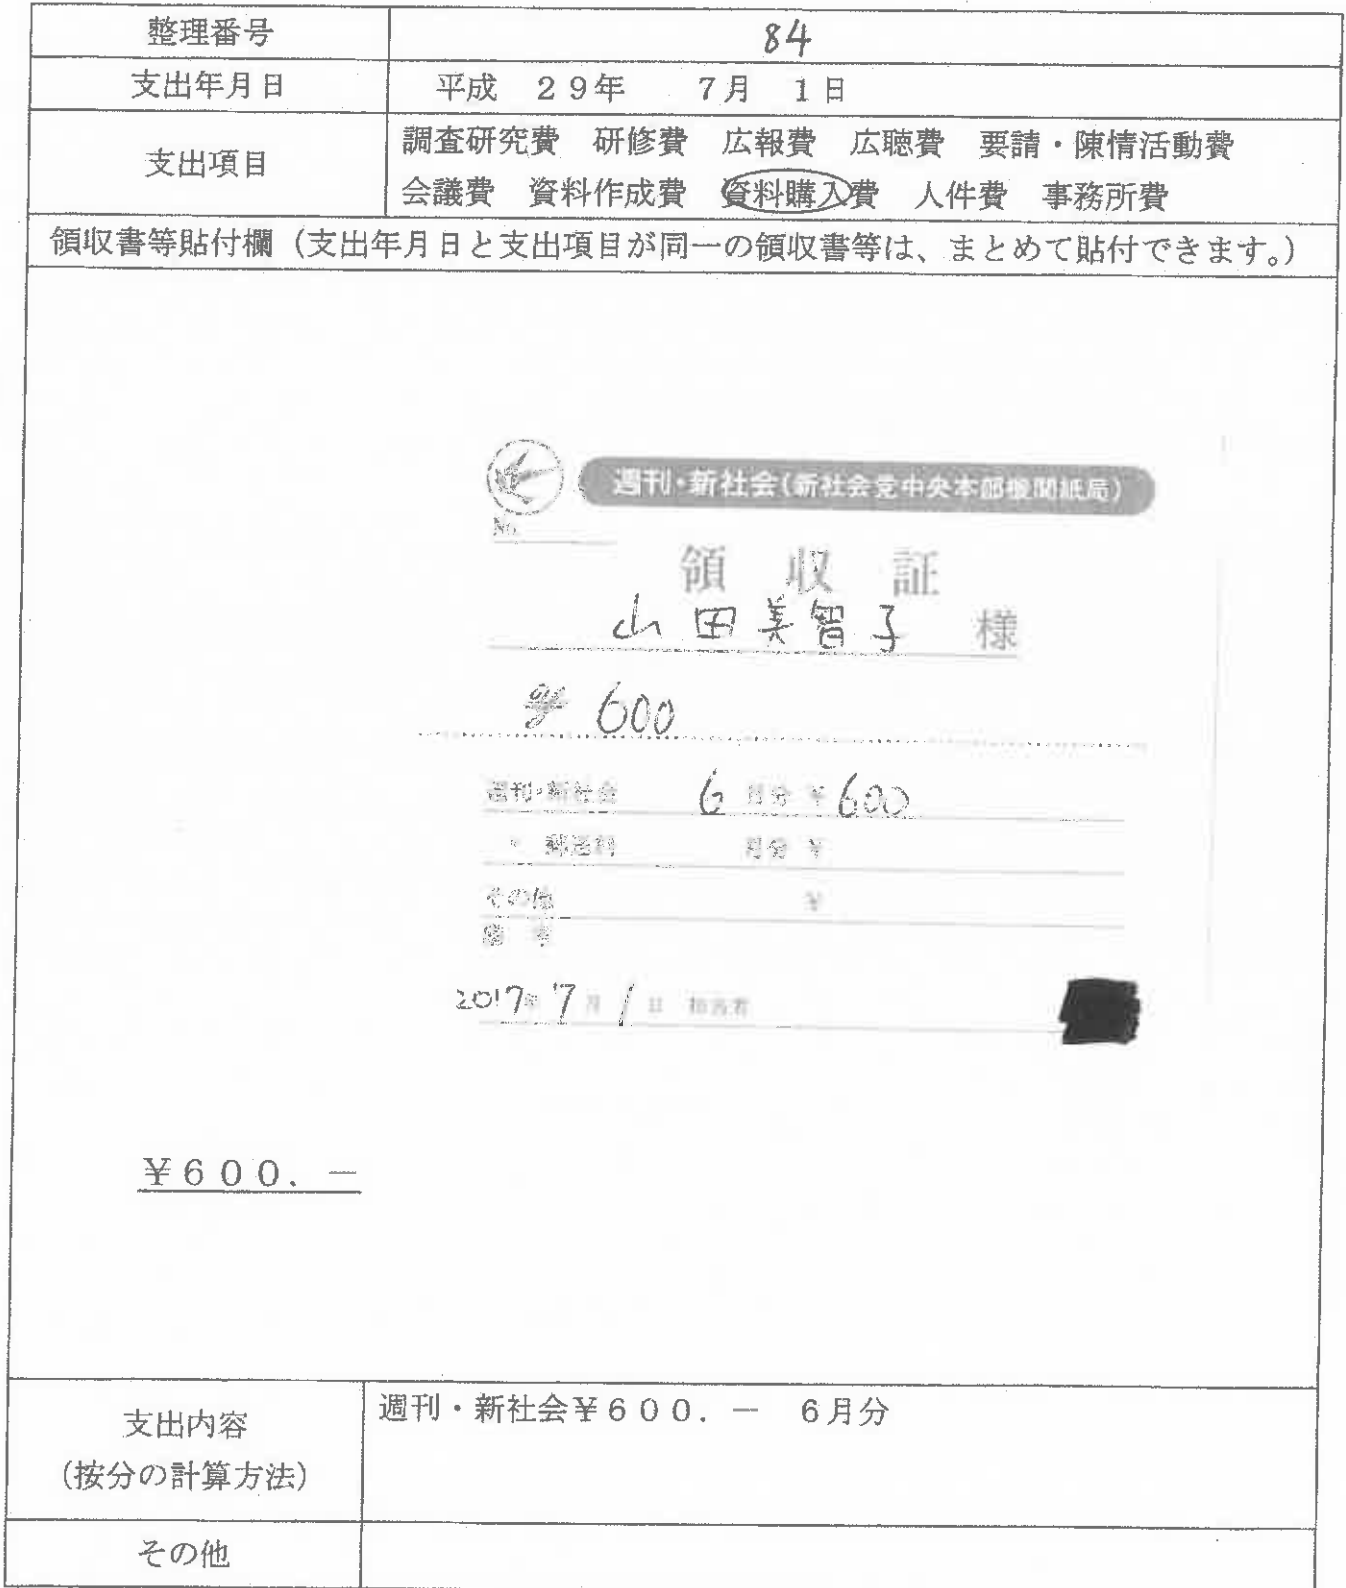 整理番号 84
支出年月日 平成 29年 7月 1日
支出項目
調査研究費 研修費 広報費 広聴費 要請・陳情活動費
会議費 資料作成費 資料購入費 人件費 事務所費
領収書等貼付欄（支出年月日と支出項目が同一の領収書等は、まとめて貼付できます。）
週刊・新社会(新社会党中央本部機関紙局)
No.
領 収 証
山田美智子 様
¥ 600
週刊・新社会 6 月分 ¥ 600
〃 郵送料 月分 ¥
その他 ¥
2017年 7月 1日 担当者
¥600.－
支出内容
(按分の計算方法)
週刊・新社会¥600.－ 6月分
その他